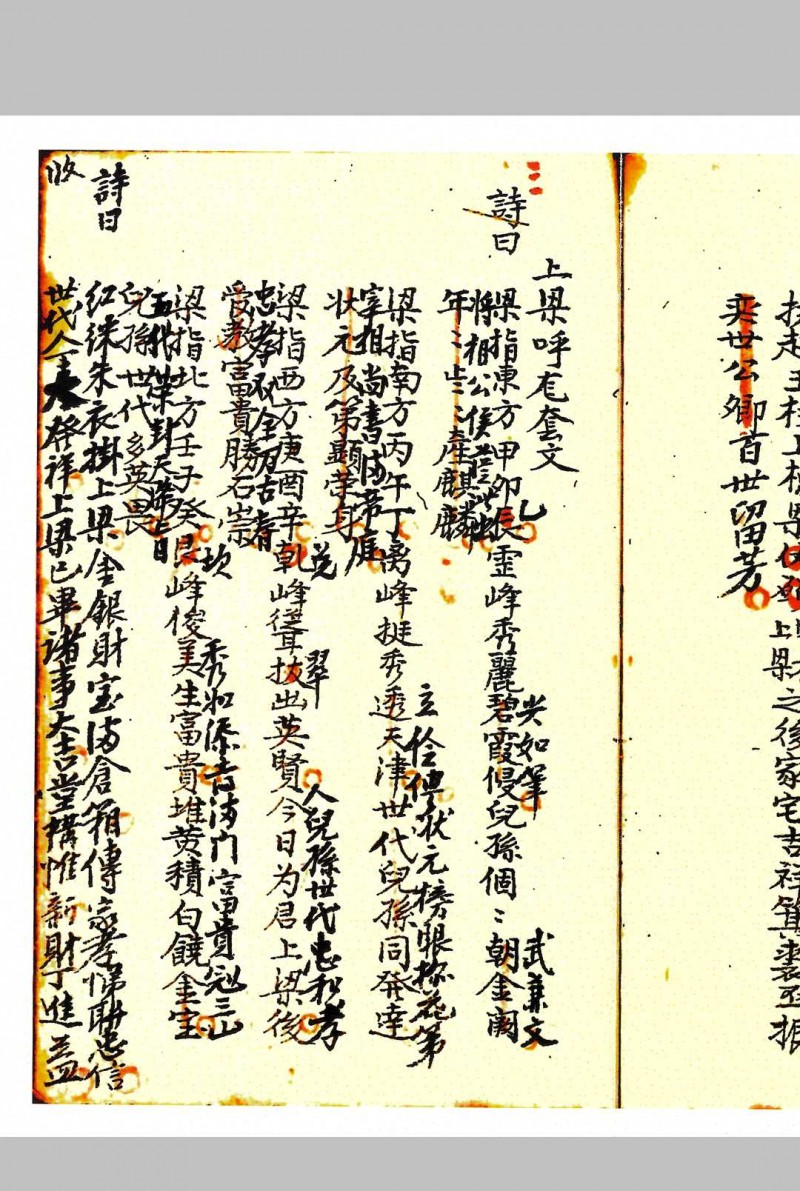 扶起玉柱上
上梁之後家宅吉祥箕裘丕振
奕世公卿百世留芳
上梁呼龙套文
詩曰
梁指東方甲卯辰靈峰秀麗碧霞侵兒孫個々朝金闕
乙
尖如筆
武兼文
將相公侯
年々出々產麒麟
梁指南方丙午丁离峰挺秀透天津世代兒孫同發達
立
狀元榜眼探花第
宰相尚書滿帝庭
狀元及第顯榮身
梁指西方庚酉辛乾峰聳拔出英賢今日为君上梁後
兑
翠
人兒孫世代忠和孝
忠孝双全万古香
受教富貴勝石崇
梁指北方壬子癸艮峰俊美生富貴堆黄積白饒金宝
坎
秀
滿门富貴冠三山
五代榮封
兒孫世代多英畏
詩曰
紅綵朱衣掛上梁金銀財宝滿倉箱傳家孝悌耕忠信
世代人
祥上梁已畢諸事大吉堂構惟新財丁進益
收